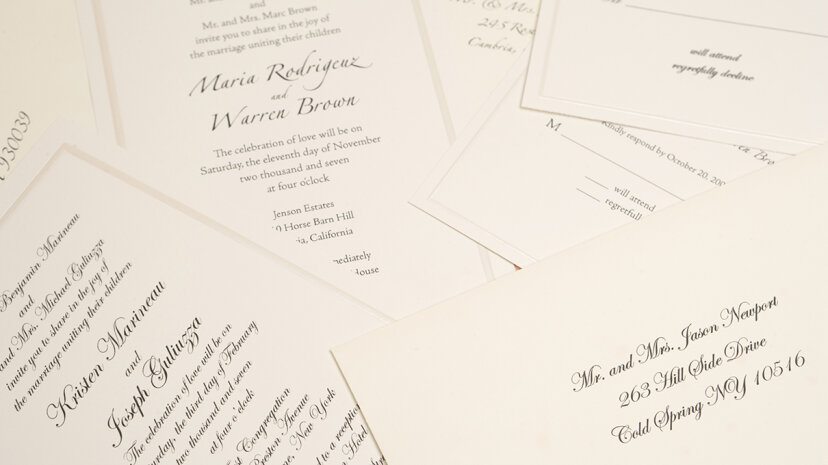 and
Mr. and Mrs. Marc Brown
invite you to share in the joy of
the marriage uniting their children
Maria Rodrigeuz
and
Warren Brown
The celebration of love will be on
Saturday, the eleventh day of November
two thousand and seven
at four o'clock
Jenson Estates
9 Horse Barn Hill
California
House
Mrs.
245
Cambria,
will attend
regretfully decline
M
Kindly respond by October 20,
will attend
93003
Benjamin Marineau
and
and Mrs. Michael Guliuzza
invite you to share in the joy of
the marriage uniting their children
Kristen Marineau
and
Joseph Guliuzza
The celebration of love will be on
Saturday, the third day of February
two thousand and seven
at four o'clock
Congregation
Preston Avenue
New York
to a reception
Hotel
Mr. and Mrs. Jason Newport
263 Hill Side Drive
Cold Spring NY 10516